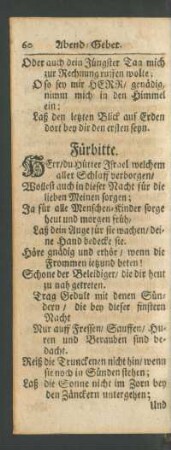 60 Abend-Gebet.
Oder auch dein Jüngster Tag mich
zur Rechnung ruffen wolte:
O so sey mir HERR/ genädig,
nimm mich in den Himmel
ein;
Laß den letzten Blick auf Erden
dort bey dir den ersten seyn.
Fürbitte.
HErr/du Hütter Israel welchem
aller Schlaff verborgen/
Wollest auch in dieser Nacht für die
lieben Meinen sorgen;
Ja für alle Menschen-Kinder sorge
heut und morgen früh/
Laß dein Auge für sie wachen/dei-
ne Hand bedecke sie.
Höre gnädig und erhör/ wenn die
Frommen ietzund beten!
Schone der Beleidiger/ die dir heut
zu nah getreten.
Trag Gedult mit denen Sün-
dern/ die bey dieser finstern
Nacht
Nur auff Fressen/ Sauffen/ Hu-
ren und Berauben sind be-
dacht.
Reiß die Trunckenen nicht hin/ wenn
sie noch in Sünden stehen;
Laß die Sonne nicht im Zorn bey
den Zänckern untergehen;
Und